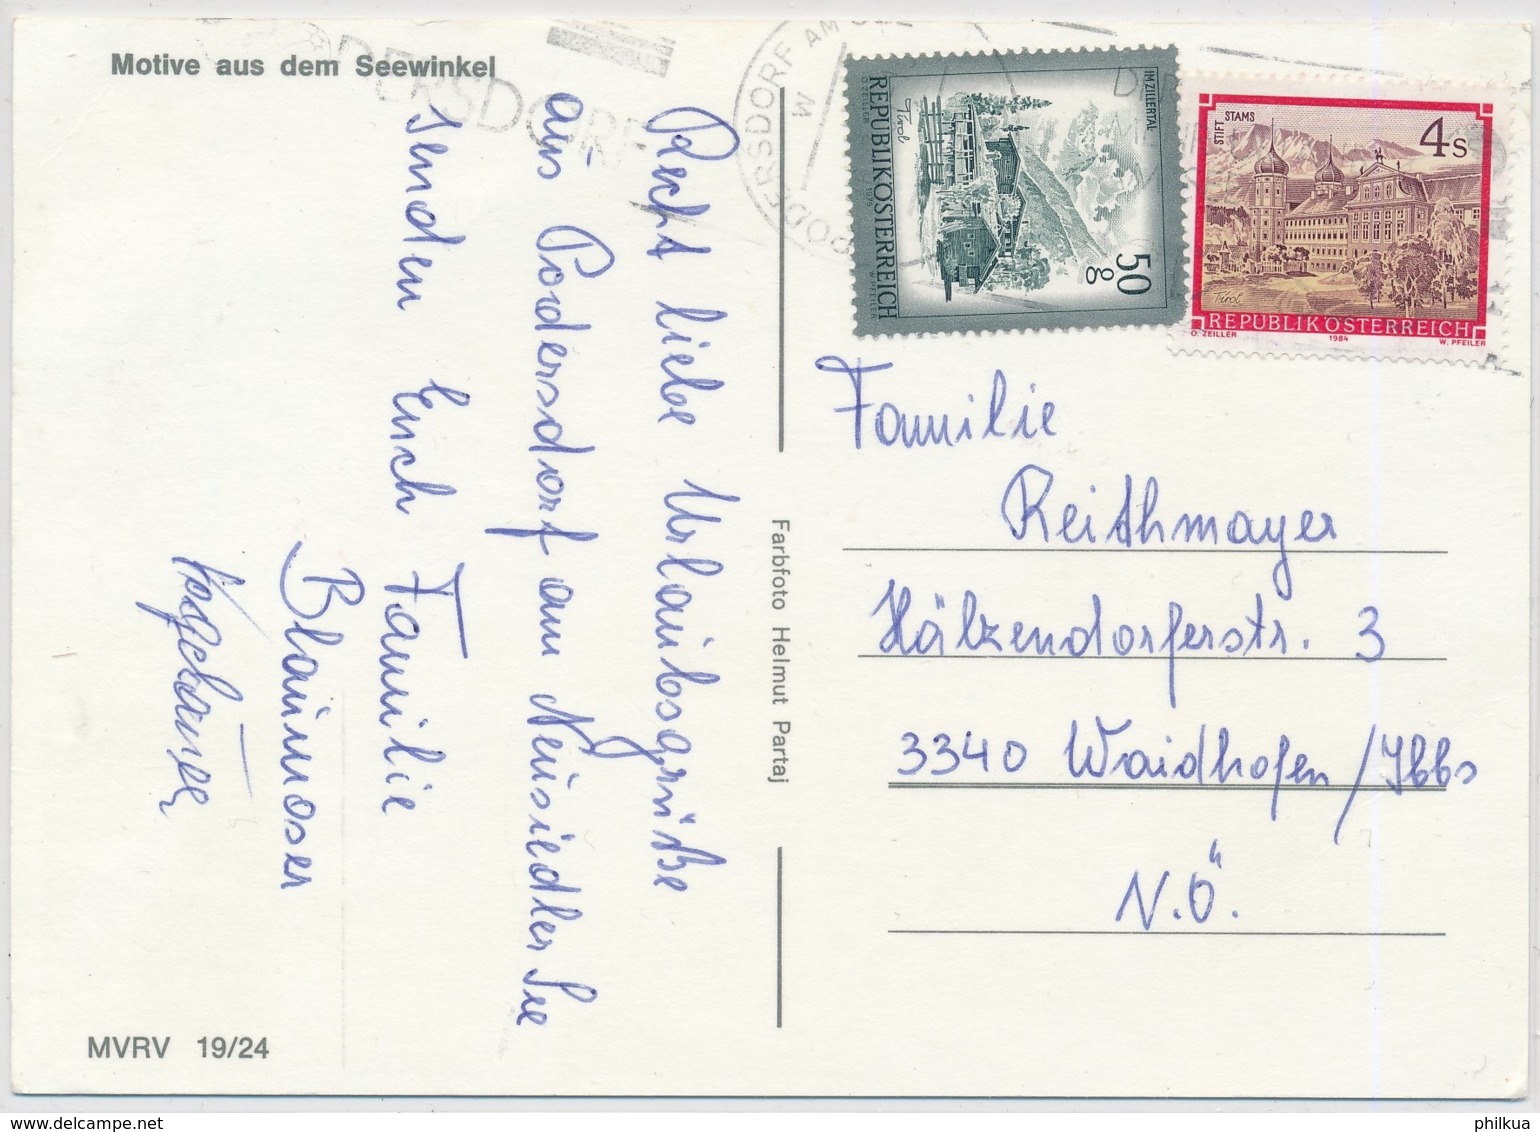 Motive aus dem Seewinkel
Recht liebe Urlaubsgrüße
aus Podersdorf am Neusiedler See
senden Euch Familie
Blaimoser
PODERSDORF AM SEE
DERSDORF
IM ZILLERTAL
O. ZEILLER
Tirol
REPUBLIK ÖSTERREICH
1975
W. PFEILER
50
g
STIFT STAMS
4 S
Tirol
REPUBLIK ÖSTERREICH
O. ZEILLER 1984 W. PFEILER
Familie
Reithmayer
Hölzendorferstr. 3
3340 Waidhofen/Ybbs
N.Ö.
Farbfoto Helmut Partaj
MVRV 19/24
philkua
www.delcampe.net